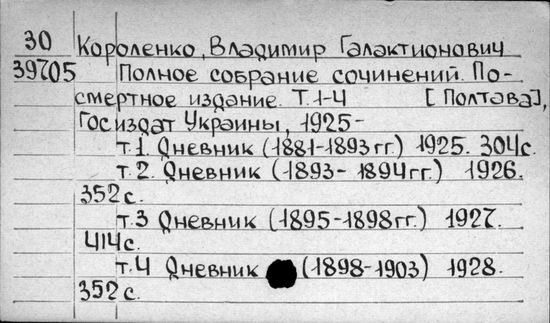 30 Короленко, Владимир Галактионович
39705 Полное собрание сочинений. По-
смертное издание. Т.1-4 [Полтава],
Госиздат Украины, 1925-
т.1. Дневник (1881-1893гг.) 1925. 304с.
т.2. Дневник (1893-1894гг.) 1926.
352с.
т.3 Дневник (1895-1898гг.) 1927.
414с.
т.4 Дневник (1898-1903) 1928.
352с.